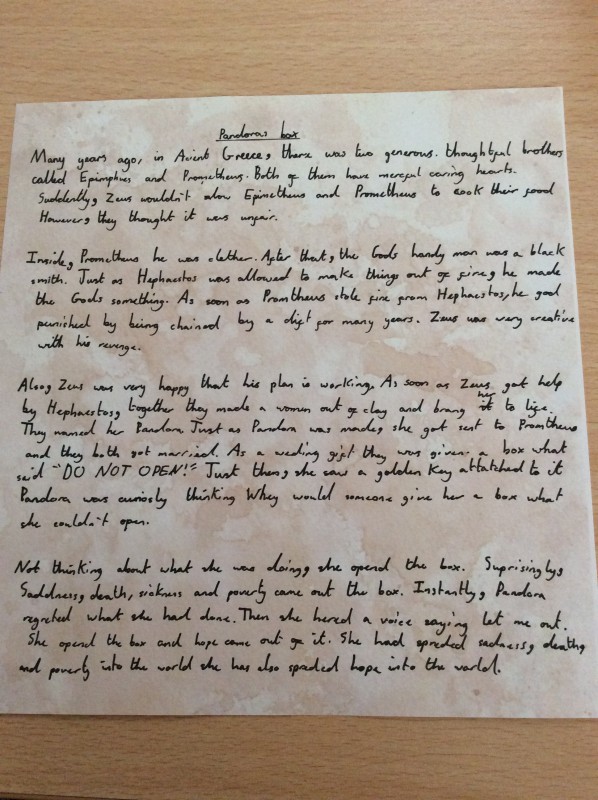 Pandoras box
Many years ago, in Acient Greece, there was two generous. thoughtful brothers
called Epimphius and Prometheus. Both of them have merceful caring hearts.
Suddenly, Zeus wouldn't alow Epimetheus and Prometheus to cook their food
However, they thought it was unfair.
Inside, Prometheus he was clether. After that, the Gods handy man was a black
smith. Just as Hephaestos was allowed to make things out of fire, he made
the Gods something. As soon as Promtheus stole fire from Hephaestos, he got
punished by being chained by a clift for many years. Zeus was very creative
with his revenge.
Also, Zeus was very happy that his plan is working. As soon as Zeus got help
by Hephaestos, together they made a women out of clay and brang her to life.
They named her Pandora. Just as Pandora was made, she got sent to Promtheus
and they both got married. As a weding gift they was given a box what
said "DO NOT OPEN!" Just then, she saw a golden key attatched to it
Pandora was curiosly thinking Whey would someone give her a box what
she couldn't open.
Not thinking about what she was doing, she opend the box. Suprisingly,
Saddness, death, sickness and poverty came out the box. Instantly, Pandora
regreted what she had done. Then she hered a voice saying let me out.
She opend the box and hope came out of it. She had spreded sadness, death,
and poverty into the world she has also spreded hope into the world.